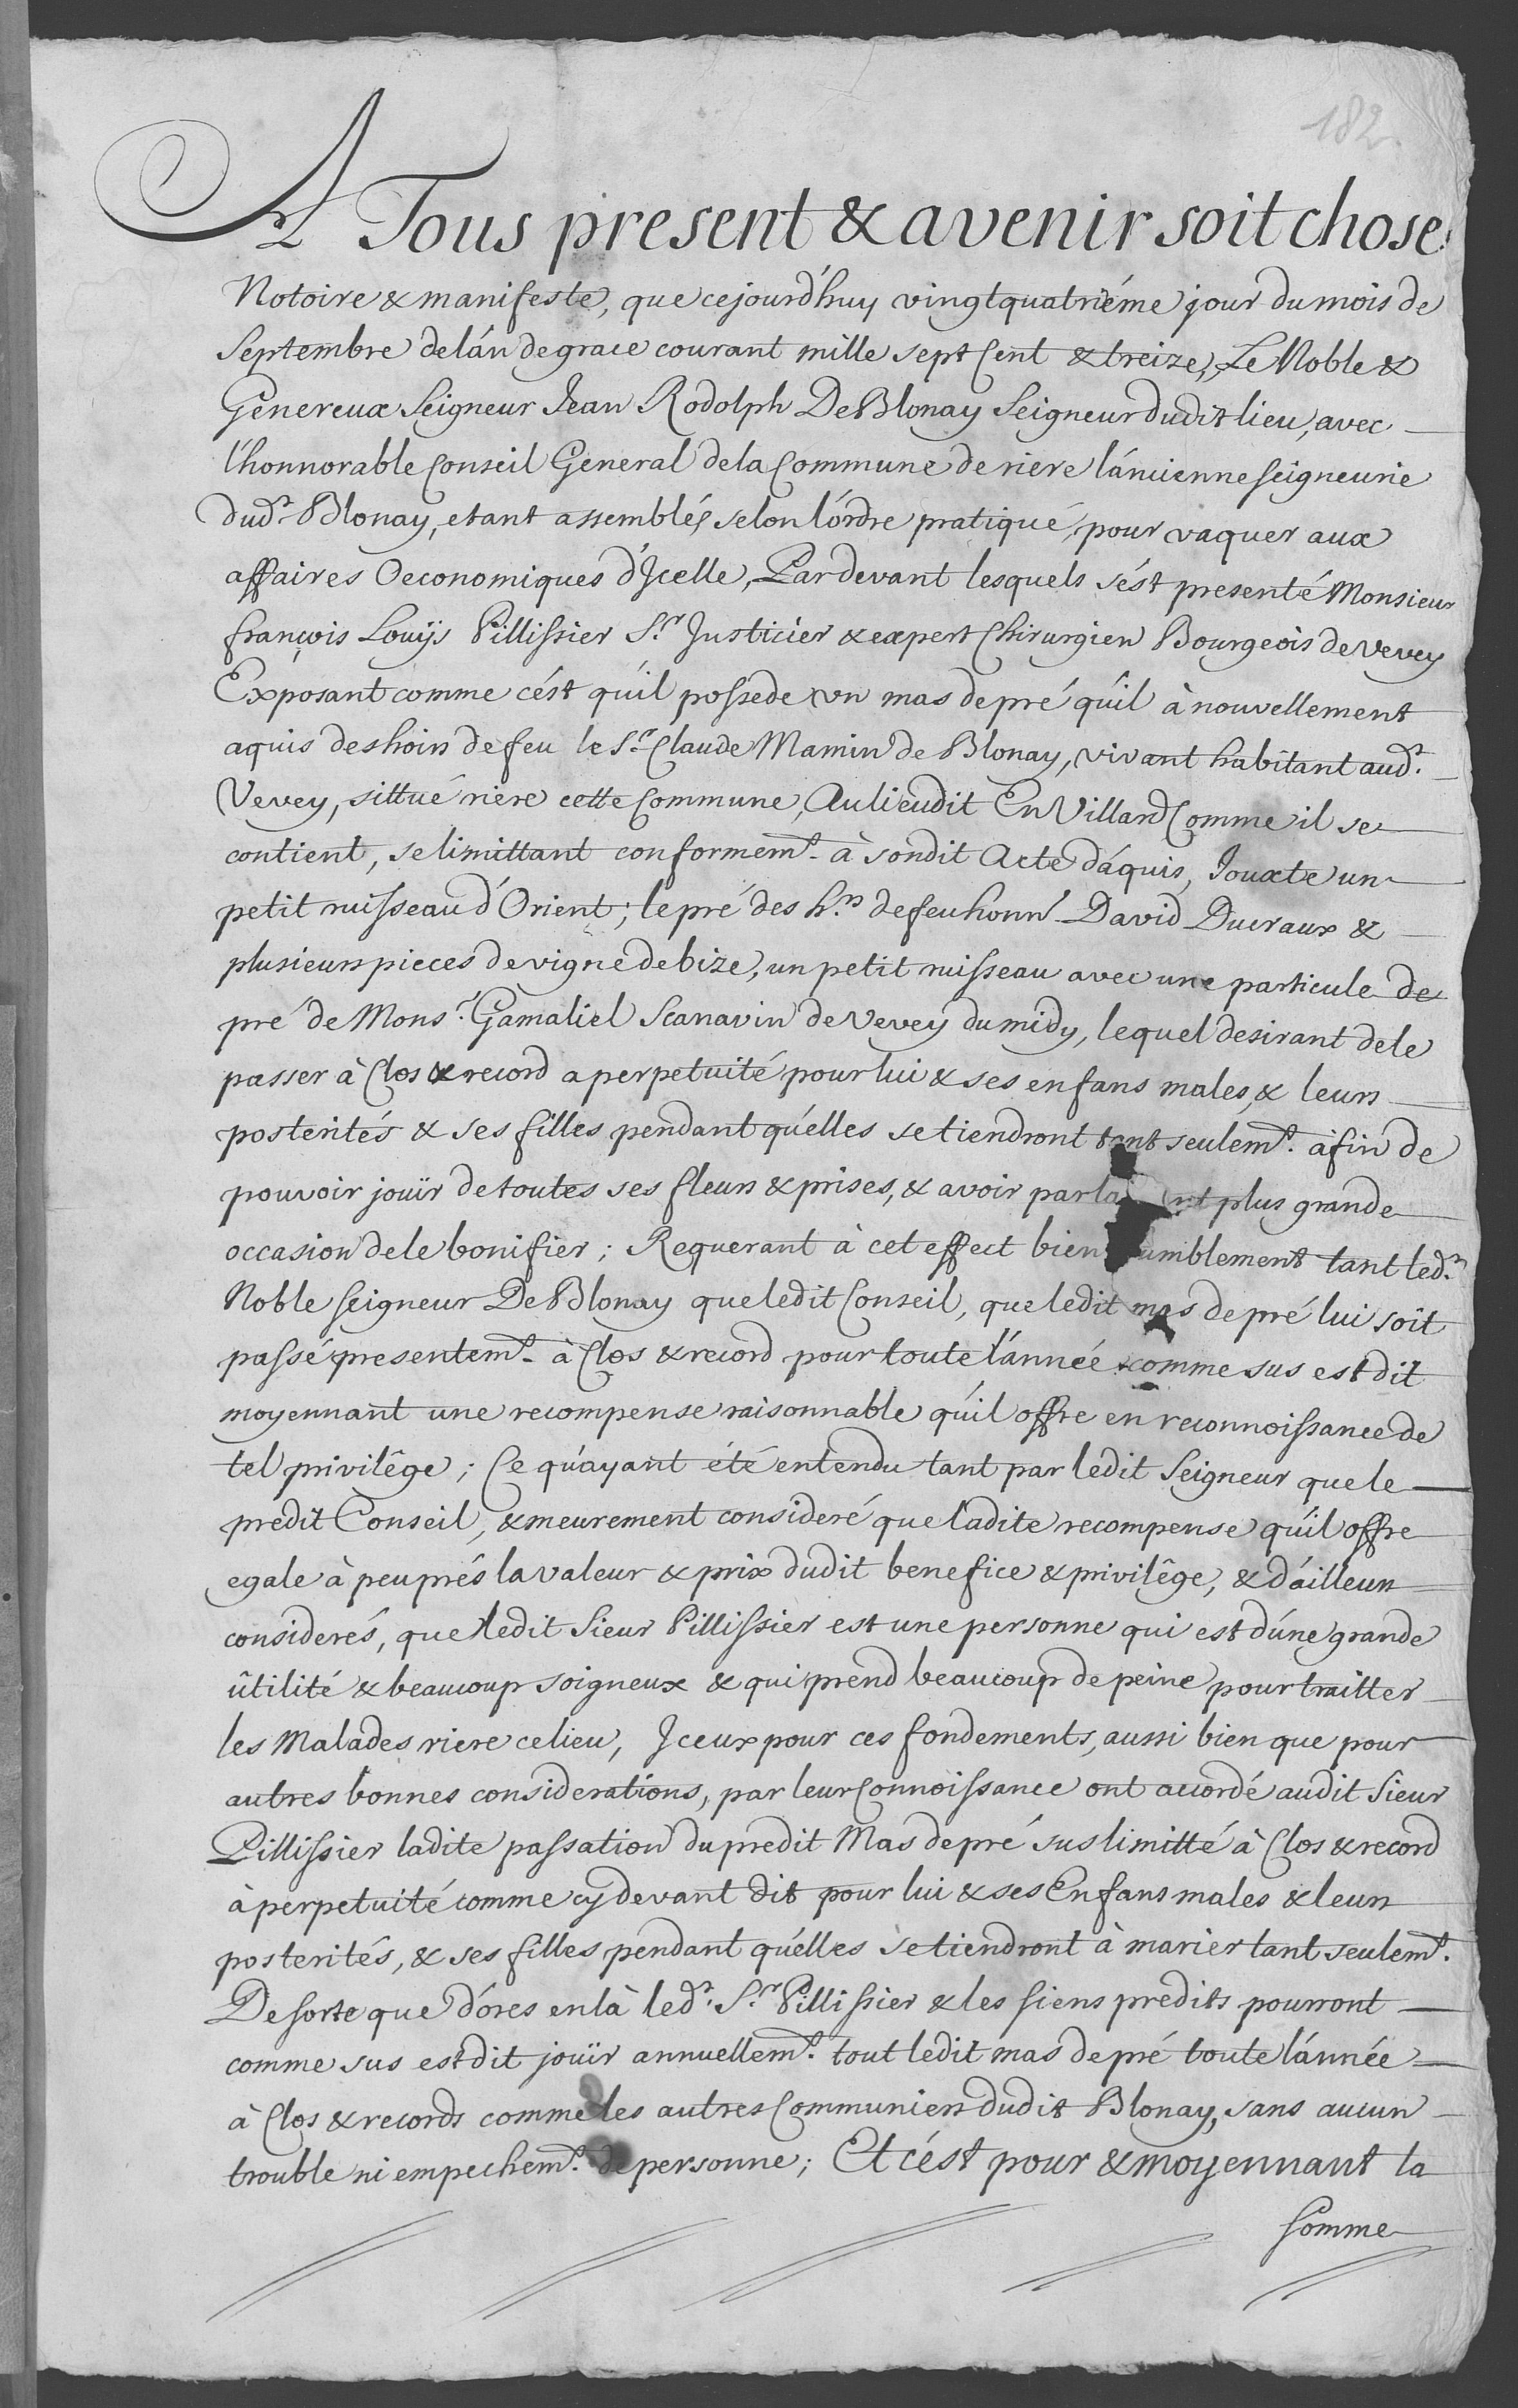 182
A Tous present & avenir soit chose
Notoire & manifeste, que cejourd'huy vingtquatriéme jour du mois de
Septembre de l'án de grace courant mille sept Cent & treize, Le Noble &
Genereux Seigneur Jean Rodolph De Blonay Seigneur dudit lieu, avec
l'honnorable Conseil General de la Commune de riere l'ánuienne seigneurie
dud.t Blonay, etant assemblés selon l'órdre pratiqué, pour vaquer aux
affaires Oeconomiques d'Icelle, Pardevant lesquels s'ést presenté Monsieur
françois Louijs Pillissier S.r Justicier & expert Chirurgien Bourgeois de Vevey
Exposant comme c'ést qu'il possede un mas de pré qu'il à nouvellement
aquis des hoirs de feu le S.r Claude Mamin de Blonay, vivant habitant aud.t
Vevey, sittué riere cette Commune, Au lieudit En Villard Comme il se
contient, se limittant conformem.t à sondit Acte d'áquis, Jouxte un
petit ruisseau d'Orient; le pré des h.rs de feu honn.l David Ducraux &
plusieurs pieces de vigne de bize, un petit ruisseau avec une particule de
pré de Mons.r Gamaliel Scanavin de Vevey du midy, lequel desirant de le
passer à Clos & record a perpetuité pour lui & ses enfans males, & leurs
posterités & ses filles pendant qu'elles se tiendront tant seulem.t àfin de
pouvoir jouïr de toutes ses fleurs & prises, & avoir par plus grande
occasion de le bonifier; Requerant à cet effect bien umblement tant led.t
Noble seigneur De Blonay que ledit Conseil, que ledit mas de pré lui soit
passé presentem.t à Clos & record pour toute l'année comme sus est dit
moyennant une recompense raisonnable qu'il offre en reconnoissance de
tel privilêge; Ce qu'ayant été entendu tant par ledit Seigneur que le
predit Conseil, & meurement consideré que ladite recompense qu'il offre
egale à peuprés la valeur & prix dudit benefice & privilêge, & d'áilleurs
considerés, que ledit Sieur Pillissier est une personne qui est d'úne grande
ûtilité & beaucoup soigneux & qui prend beaucoup de peine pour traitter
les Malades riere ce lieu, Iceux pour ces fondements, aussi bien que pour
autres bonnes considerations, par leur Connoissance ont accordé audit Sieur
Pillissier ladite passation du predit Mas de pré sus limitté à Clos & record
à perpetuité comme cy devant dit pour lui & ses Enfans males & leurs
posterités, & ses filles pendant qu'elles se tiendront à marier tant seulem.t
De sorte que d'óres en là led.t S.r Pillissier & les siens predits pourront
comme sus est dit jouïr annuellem.t tout ledit mas de pré toute l'ánnée
à Clos & records comme les autres Communiers dudit Blonay, sans aucun
trouble ni empechem.t de personne; Et c'ést pour & moyennant la
Somme